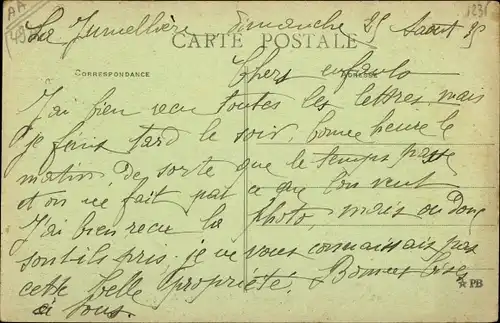 AA
49
La Jumellière dimanche 25 Aout 35
CARTE POSTALE
CORRESPONDANCE
ADRESSE
Chers enfants
J'ai bien recu toutes les lettres, mais
je finis tard le soir, bonne heure le
matin, de sorte que le temps passe
et on ne fait pas ce que l'on veut
J'ai bien recu la photo, mais ou donc
sont ils pris. je ne vous connaissais pas
cette belle propriété. Bonnes bises
à tous.
PB